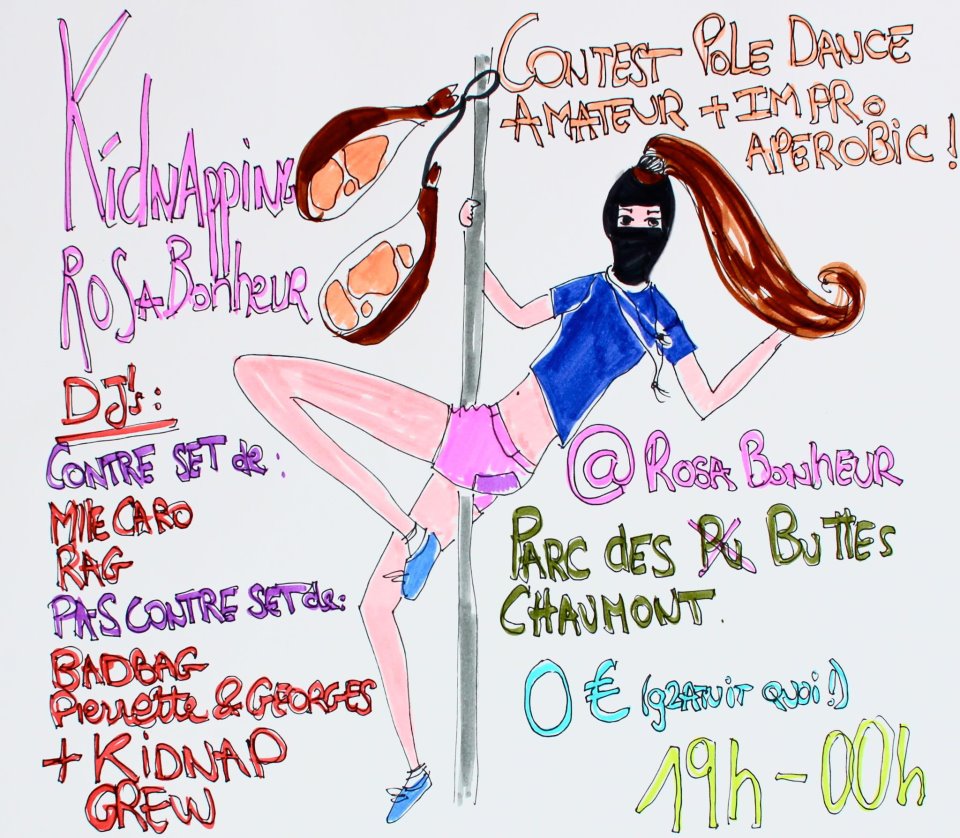 Kidnapping
Rosa Bonheur
DJ's :
Contre set de :
Mlle Caro
Rag
Pas contre set de :
BadBag
Pierrette & Georges
+ Kidnap
Crew
Contest Pole Dance
Amateur + Impro
Aperobic !
@ Rosa Bonheur
Parc des Bu Buttes
Chaumont.
0 € (gratuit quoi !)
19h - 00h